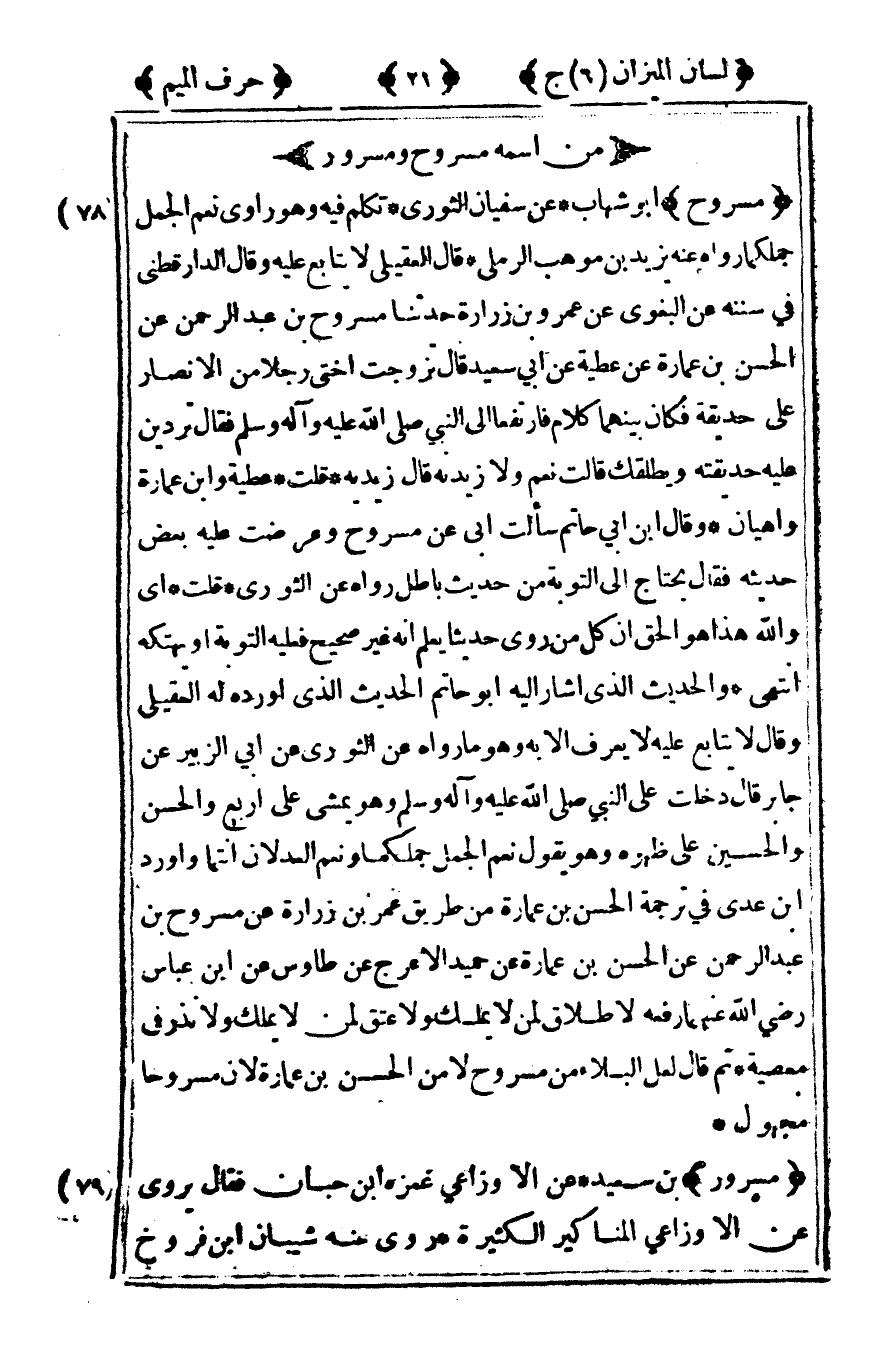 ﴿ لسان الميزان (٦) ج ﴾ ﴿ ٢١ ﴾ ﴿ حرف الميم ﴾
من اسمه مسروح ومسرور
(٧٨) ﴿ مسروح ﴾ ابو شهاب * عن سفيان الثورى * تكلم فيه وهو راوى نعم الجمل
جملكما رواه عنه يزيد بن موهب الرملى * قال العقيلى لا يتابع عليه وقال الدارقطنى
في سننه عن البغوى عن عمرو بن زرارة حدثنا مسروح بن عبد الرحمن عن
الحسن بن عمارة عن عطية عن ابي سعيد قال تزوجت اختى رجلا من الانصار
على حديقة فكان بينهما كلام فارتفعا الى النبي صلى الله عليه وآله وسلم فقال تردين
عليه حديقته ويطلقك قالت نعم ولا زيدنه قال زيديه * قلت * عطية وابن عمارة
واهيان * وقال ابن ابي حاتم سألت ابى عن مسروح وعرضت عليه بعض
حديثه فقال يحتاج الى التوبة من حديث باطل رواه عن الثورى * قلت * اى
والله هذا هو الحق ان كل من روى حديثا يعلم انه غير صحيح فعليه التوبة او يهتكه
انتهى * والحديث الذى اشار اليه ابو حاتم الحديث الذى اورده له العقيلى
وقال لا يتابع عليه لا يعرف الا به وهو ما رواه عن الثورى عن ابي الزبير عن
جابر قال دخلت على النبي صلى الله عليه وآله وسلم وهو يمشى على اربع والحسن
والحسين على ظهره وهو يقول نعم الجمل جملكما ونعم العدلان انتما واورد
ابن عدى في ترجمة الحسن بن عمارة من طريق عمر بن زرارة عن مسروح بن
عبد الرحمن عن الحسن بن عمارة عن حميد الاعرج عن طاوس عن ابن عباس
رضي الله عنهما رفعه لا طلاق لمن لا يملك ولا عتق لمن لا يملك ولا نذر فى
معصية * ثم قال لعل البلاء من مسروح لا من الحسن بن عمارة لان مسروحا
مجهول *
(٧٩) ﴿ مسرور ﴾ بن سعيد * عن الاوزاعي غمزه ابن حبان فقال يروى
عن الاوزاعي المناكير الكثيرة روى عنه شيبان ابن فروخ